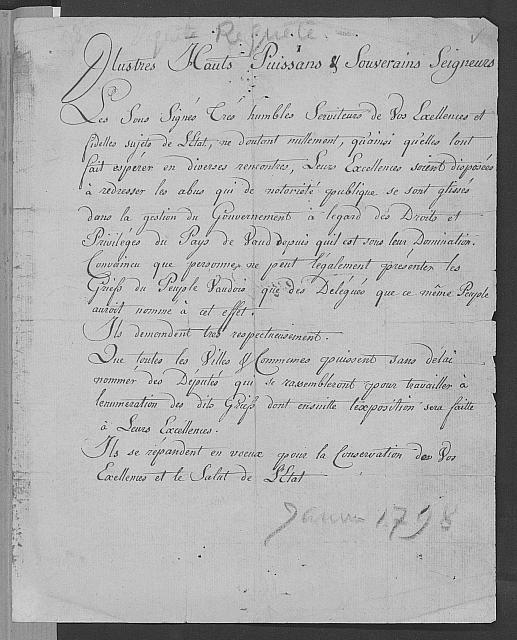 Requête
Illustres Hauts Puissans & Souverains Seigneurs
Les Sous Signés Trés humbles Serviteurs de Vos Exellences et
fidelles sujets de L'Etat, ne doutant nullement, qu'ainsi qu'elles l'ont
fait espérer en diverses rencontres, Leurs Excellences soient disposées
à redresser les abus qui de notoriété publique se sont glissés
dans la gestion du Gouvernement à legard des Droits et
Privilégés du Pays de Vaud depuis quil est sous leur Domination.
Convaincu que personne ne peut légalement présenter les
Griefs du Peuple Vaudois que des Délégués que ce même Peuple
auroit nommé à cet effet.
Ils demendent trés respectueusement.
Que toutes les Villes & Communes puissent sans délai
nommér des Députés qui se rassembleront pour travailler à
lenumération des dits Griefs dont ensuitte l'exposition sera faitte
à Leurs Excellences.
Ils se répandent en voeux pour la Conservation de Vos
Exellences et le Salut de L'Etat
Janvier 1798